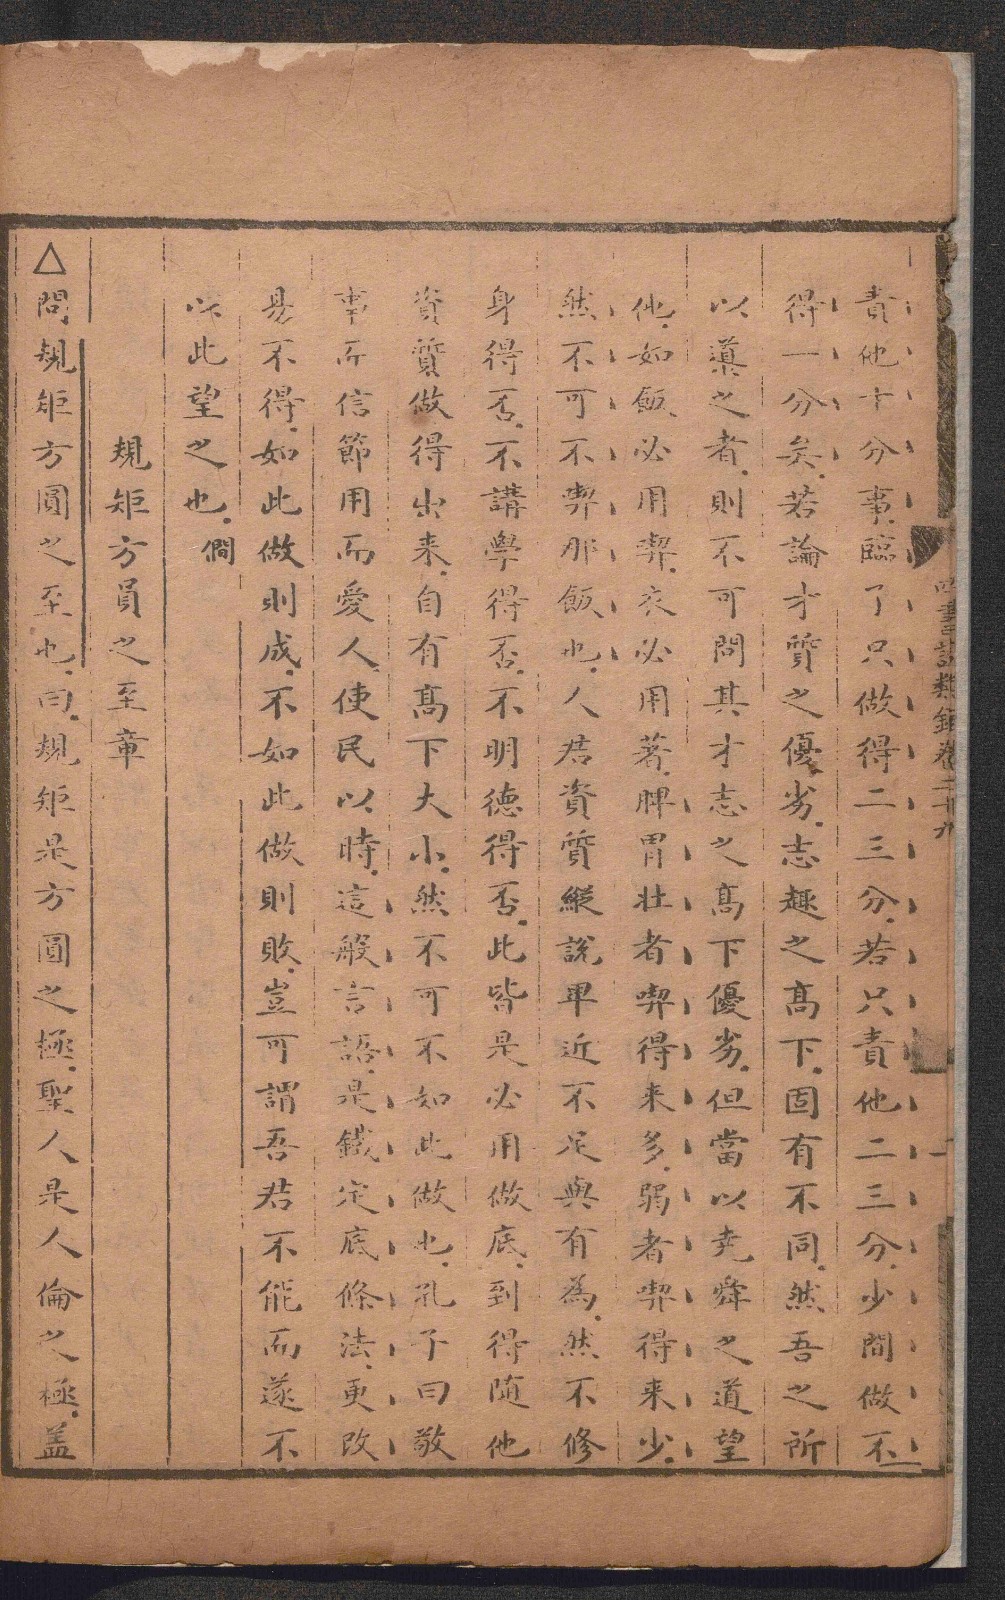 四書語類鈔卷二十九
責他十分事臨了只做得二三分若只責他二三分少間做不
得一分矣若論才質之優劣志趣之髙下固有不同然吾之所
以導之者則不可問其才志之髙下優劣但當以堯舜之道望
他如飯必用喫衣必用著脾胃壯者喫得来多弱者喫得来少
然不可不喫那飯也人君資質縱說卑近不足與有為然不修
身得否不講學得否不明德得否此皆是必用做底到得随他
資質做得出来自有髙下大小然不可不如此做也孔子曰敬
事而信節用而愛人使民以時這般言語是鐵定底條法更改
易不得如此做則成不如此做則敗豈可謂吾君不能而遂不
以此望之也僴
規矩方員之至章
△問規矩方圓之至也曰規矩是方圓之極聖人是人倫之極盖